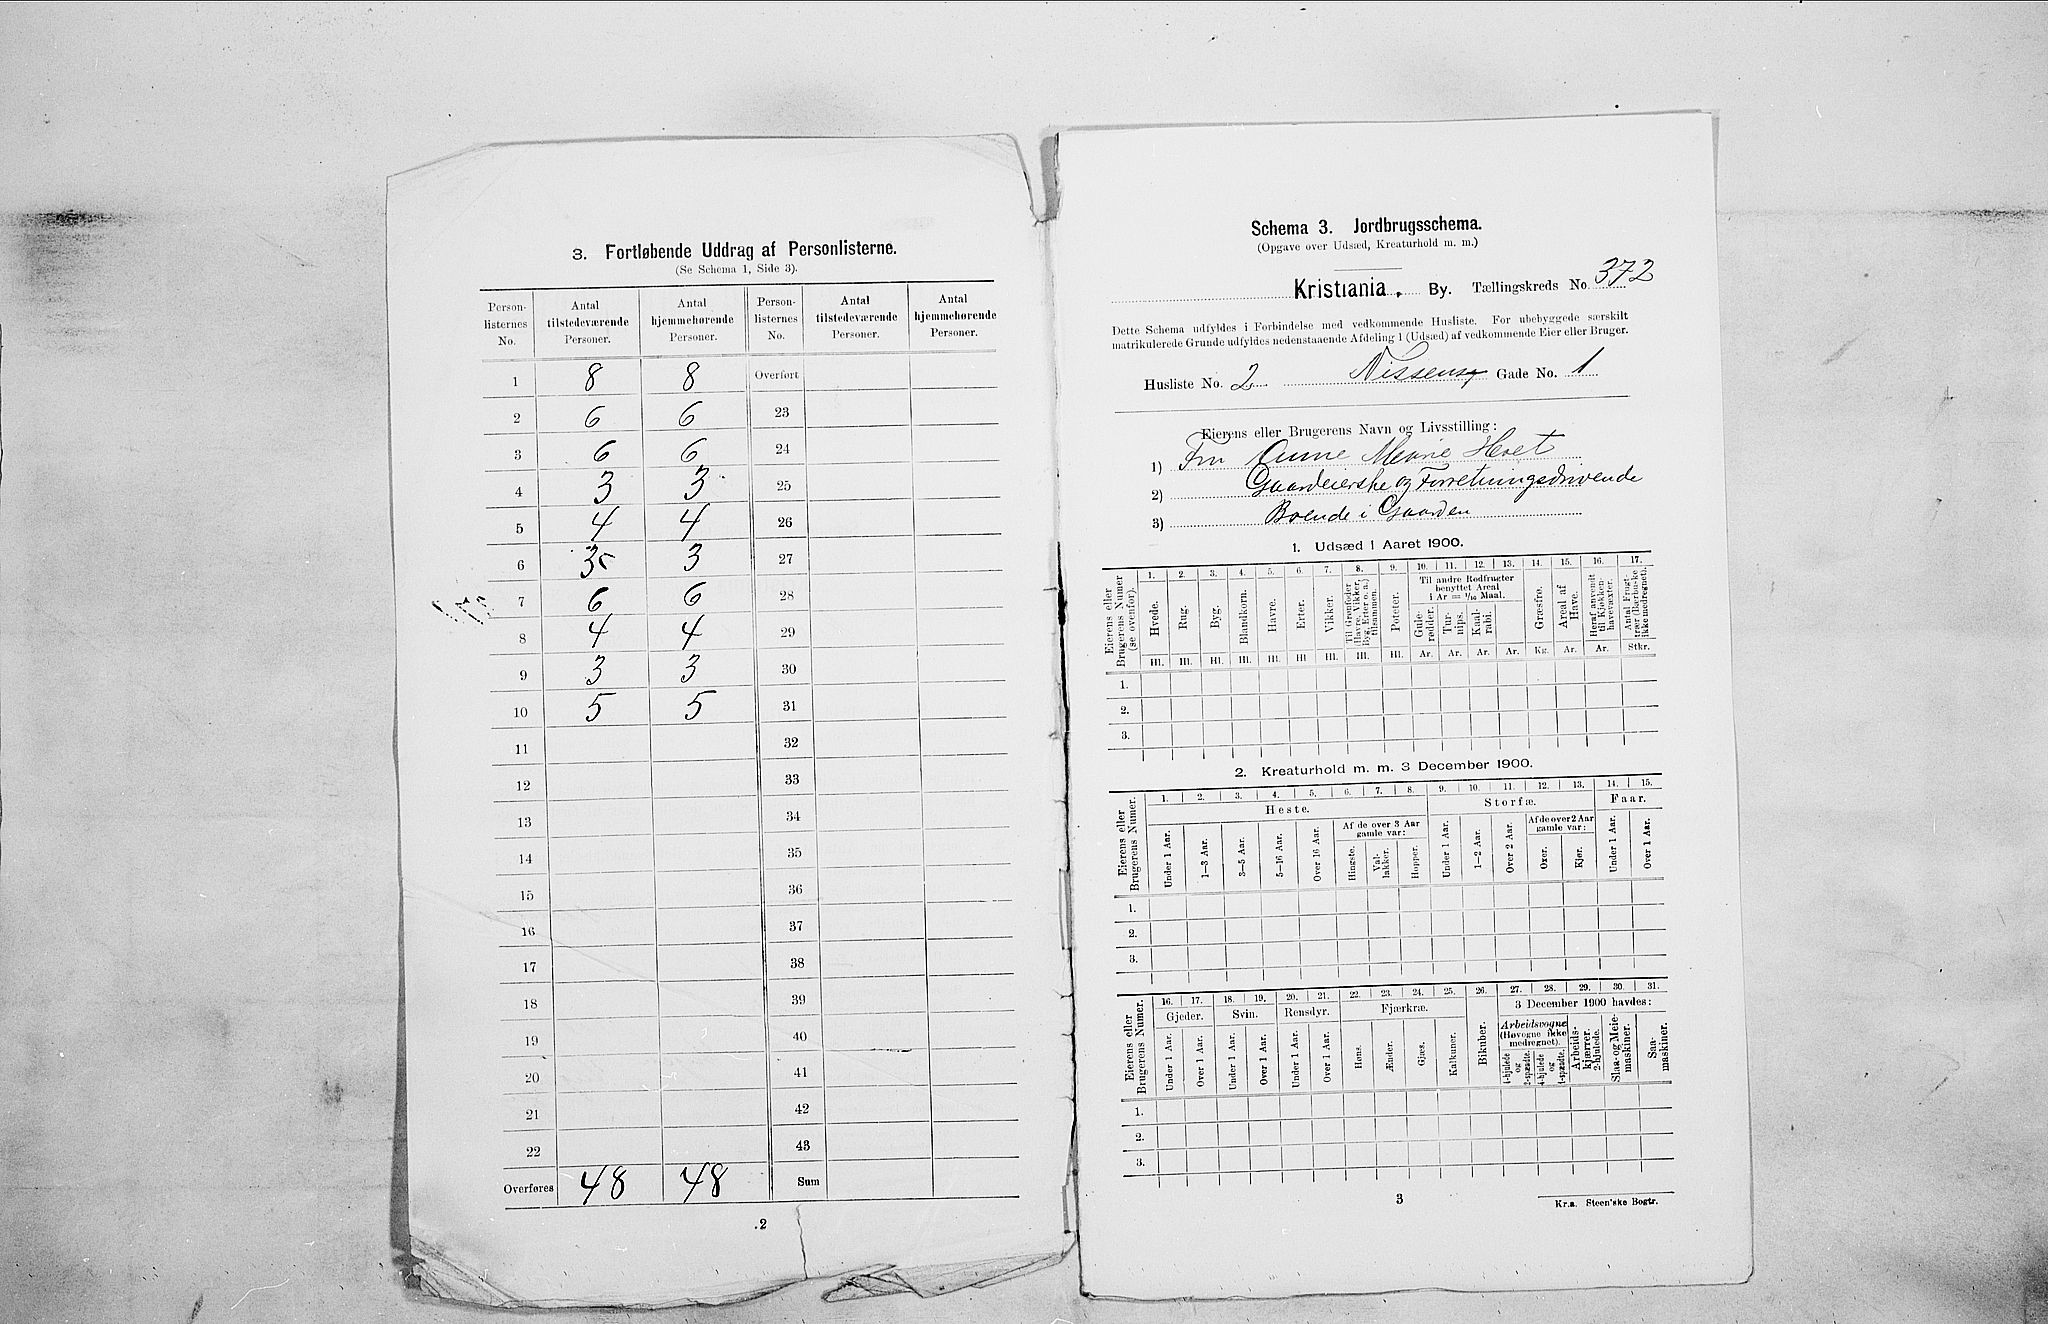 3. Fortløbende Uddrag af Personlisterne.
(Se Schema 1, Side 3).
Person-listernes No. | Antal tilstedeværende Personer. | Antal hjemmehørende Personer. | Person-listernes No. | Antal tilstedeværende Personer. | Antal hjemmehørende Personer.
1 8 8 Overført
2 6 6 23
3 6 6 24
4 3 3 25
5 4 4 26
6 3 3 27
7 6 6 28
8 4 4 29
9 3 3 30
10 5 5 31
11 32
12 33
13 34
14 35
15 36
16 37
17 38
18 39
19 40
20 41
21 42
22 43
Overføres 48 48 Sum
2
Schema 3. Jordbrugsschema.
(Opgave over Udsæd, Kreaturhold m. m.)
Kristiania. By. Tællingskreds No. 372
Dette Schema udfyldes i Forbindelse med vedkommende Husliste. For ubebyggede særskilt
matrikulerede Grunde udfyldes nedenstaaende Afdeling 1 (Udsæd) af vedkommende Eier eller Bruger.
Husliste No. 2 Nissensg Gade No. 1
Eierens eller Brugerens Navn og Livsstilling:
1) Fru Anne Marie
2) Gaardeierske og Forretningsdrivende
3) Boende i Gaarden
1. Udsæd i Aaret 1900.
Eierens eller Brugerens Numer (se ovenfor).
1. 2. 3. 4. 5. 6. 7. 8. 9. 10. 11. 12. 13. 14. 15. 16. 17.
Til andre Rodfrugter benyttet Areal i Ar = 1/10 Maal.
Hvede. Rug. Byg. Blandkorn. Havre. Erter. Vikker. Til Grønfoder (Havre, Vikker, Byg, Erter o. a.) tilsammen. Poteter. Gule-rødder. Tur-nips. Kaal-rabi. Græsfrø. Areal af Have. Heraf anvendt til Kjøkken-havevæxter. Antal Frugt-træer (Bærbuske ikke medregnet).
Hl. Hl. Hl. Hl. Hl. Hl Hl. Hl. Hl. Ar. Ar. Ar. Ar. Kg. Ar. Ar. Stkr.
1.
2.
3.
2. Kreaturhold m. m. 3 December 1900.
Eierens eller Brugerens Numer.
1. 2. 3. 4. 5. 6. 7. 8. 9. 10. 11. 12. 13. 14. 15.
Heste. Storfæ. Faar.
Af de over 3 Aar gamle var: Af de over 2 Aar gamle var:
Under 1 Aar. 1—3 Aar. 3—5 Aar. 5—16 Aar. Over 16 Aar. Hingste. Val-lakker. Hopper. Under 1 Aar. 1—2 Aar. Over 2 Aar. Oxer. Kjør. Under 1 Aar. Over 1 Aar.
1.
2.
3.
Eierens eller Brugerens Numer.
16. 17. 18. 19. 20. 21. 22. 23. 24. 25. 26. 27. 28. 29. 30. 31.
Gjeder. Svin. Rensdyr. Fjærkræ. Bikuber. 3 December 1900 havdes:
Arbeidsvogne (Høvogne ikke medregnet).
Under 1 Aar. Over 1 Aar. Under 1 Aar. Over 1 Aar. Under 1 Aar. Over 1 Aar. Høns. Ænder. Gjæs. Kalkuner. 4-hjulede og 2-spændte. 4-hjulede og 1-spændte. Arbeids-kjærrer, 2-hjulede. Slaa- og Meie-maskiner. Saa-maskiner.
1.
2.
3.
3
Kr.a. Steen'ske Bogtr.